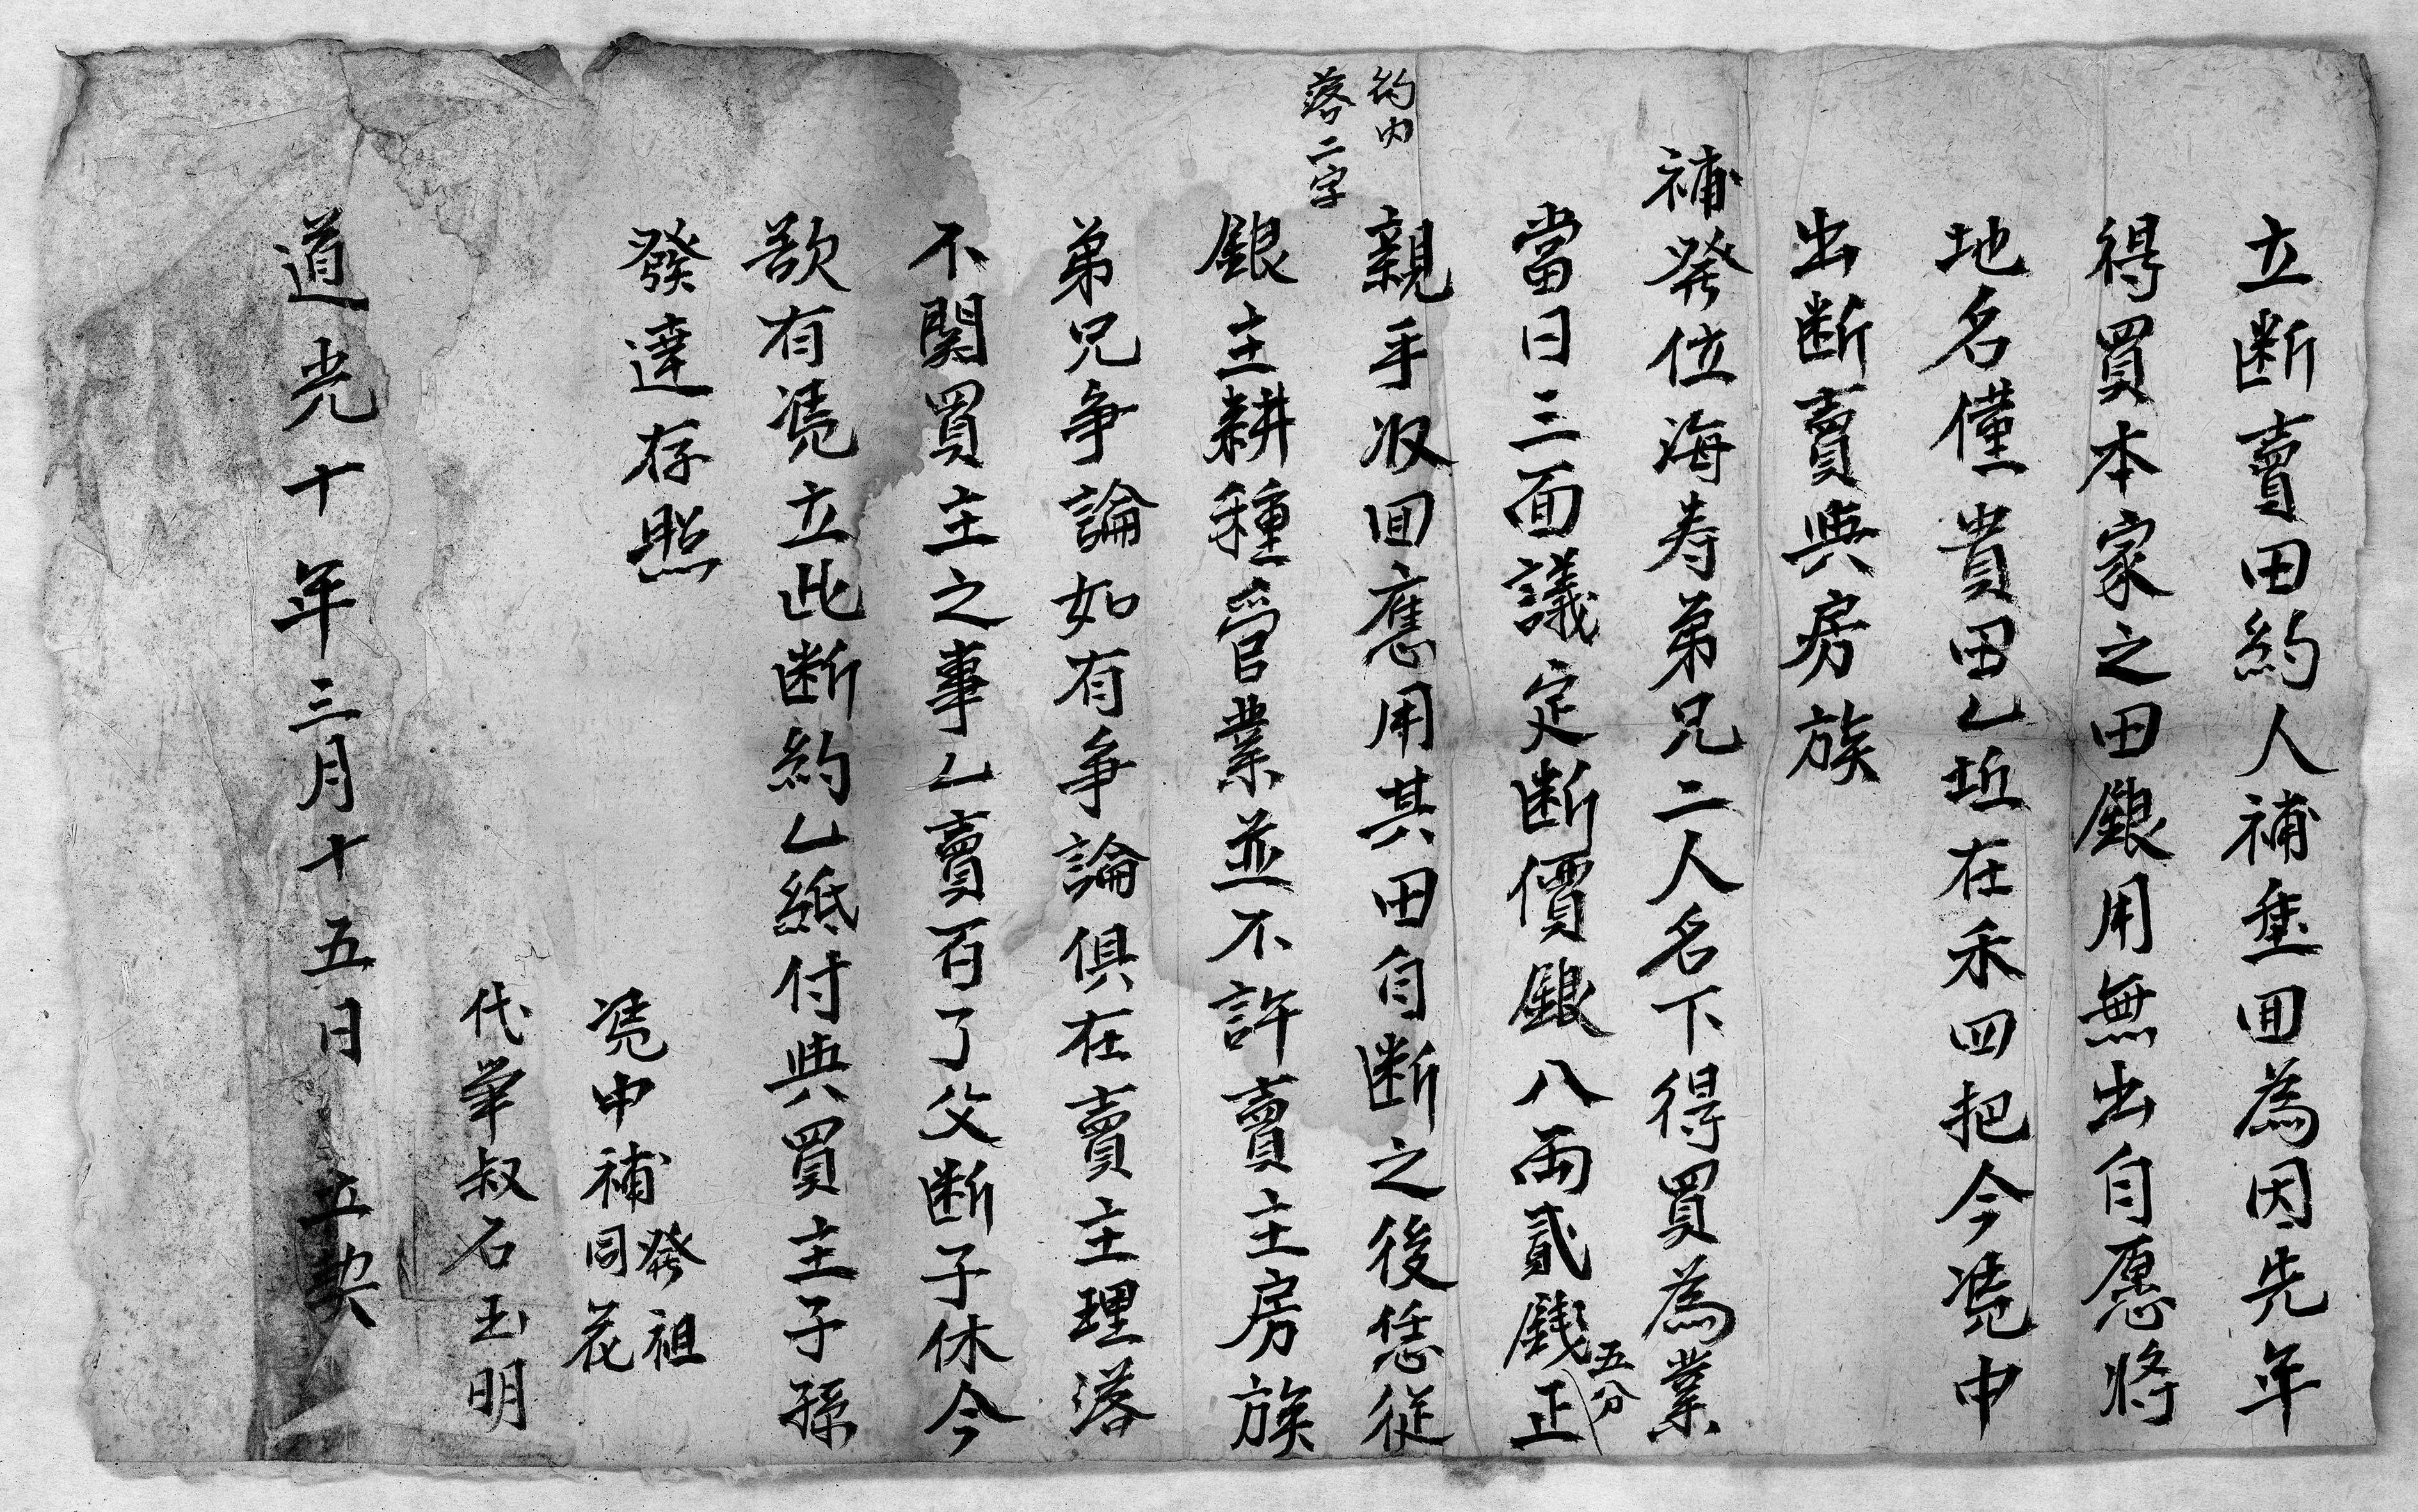 立断賣田約人補垂回為因先年
得買本家之田銀用無出自愿將
地名僅貴田乚坵在禾四把今凴中
出断賣與房族
補發位海寿弟兄二人名下得買為業
當日三面議定断價銀八両貳錢五分正
約内
落二字
親手収回應用其田自断之後恁従
銀主耕種管業並不許賣主房族
弟兄争論如有争論俱在賣主理落
不関買主之事乚賣百了父断子休今
欲有凴立此断約乚紙付與買主子孫
發達存照
凴中補發祖
同花
代筆叔石玉明
道光十年三月十五日 立契